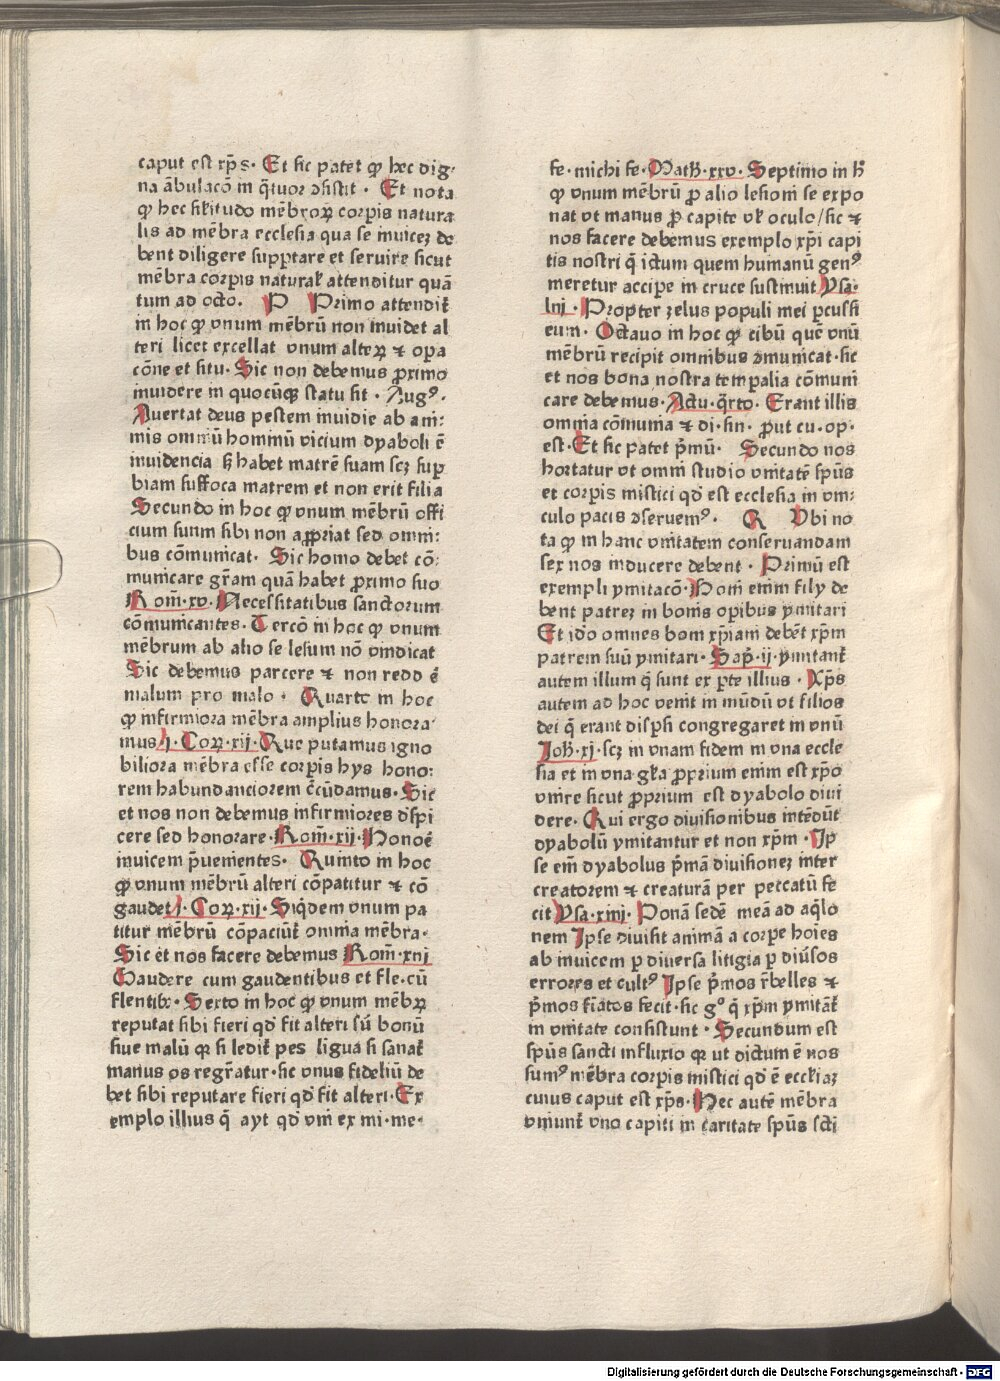 caput est xp̄s· Et sic patet ꝙ hec dig·
na ābulacō in q̄tuor ↄsistit · Et nota
ꝙ hec silitudo mēbroꝝ corꝑis natura
lis ad mēbra ecclesia qua se inuiceʒ de
bent diligere supꝑtare et seruire sicut
mēbra corꝑis natural attenditur quā
tum ad octo. P Primo attendit̄
in hoc ꝙ vnum mēbrū non inuidet al
teri licet excellat vnum alteꝝ ⁊ opa
cōne et situ· Sic non debemus ꝓximo
inuidere in quocūqꝫ statu sit · Augꝰ·
Auertat deus pestem inuidie ab ani:
mis omniū hominū vicium dyaboli ē
inuidencia sꝫ habet matrē suam scꝫ suꝑ
biam suffoca matrem et non erit filia
Secundo in hoc ꝙ vnum mēbrū offi
cium suum sibi non aꝓpriat sed omni:
bus cōmunicat· Sic homo debet cō:
municare gr̄am quā habet ꝓximo suo
Rom̄·xv· Necessitatibus sanctorum
cōmunicantes· Tercō in hoc ꝙ vnum
mēbrum ab alio se lesum nō vindicat
Sic debemus parcere ⁊ non redd ē
malum pro malo · Quarto in hoc
ꝙ infirmiora mēbra amplius honora
mus j· Coꝝ·xij· Que putamus igno
biliora mēbra esse corꝑis hys hono:
rem habundanciorem c̄cūdamus· Sic
et nos non debemus infirmiores dispi
cere sed honorare· Rom̄·xij· Honoē
inuicem p̄uenientes· Quinto in hoc
ꝙ vnum mēbrū alteri cōpatitur ⁊ cō
gaudet j· Coꝝ·xij· Siq̄dem vnum pa
titur mēbrū cōpaciūt̄ omnia mēbra·
Sic et nos facere debemus Rom̄·xij
Gaudere cum gaudentibus et fle·cū
flentibꝫ· Sexto in hoc ꝙ vnum mēbꝝ
reputat sibi fieri qd̄ fit alteri siū bonū
siue malū qꝛ si ledit̄ pes lingua si sanat̄
manus os regr̄atur·sic vnus fideliū de
bet sibi reputare fieri qd̄ fit alteri· Ex
emplo illius q̄ ayt qd̄ vni ex mi·me·
fe·michi fe· Math̄·xxv· Septimo in h̄
ꝙ vnum mēbrū ꝓ alio lesioni se expo
nat vt manus ꝓ capite vl oculo/sic ⁊
nos facere debemus exemplo xp̄i capi
tis nostri q̄ ictum quem humanū genꝰ
meretur acciꝑe in cruce sustinuit Ysa·
lnj · Propter zelus populi mei ꝑcussi
eum· Octauo in hoc ꝙ cibū quē vnū
mēbrū recipit omnibus ↄmunicat·sic
et nos bona nostra temꝑalia cōmuni
care debemus· Actu·q̄rto· Erant illis
omnia cōmunia ⁊ di·sin· ꝓut cu·op·
est· Et sic patet p̄mū· Secundo nos
hortatur vt omni studio vnitatē spūs
et corꝑis mistici qd̄ est ecclesia in vin:
culo pacis ↄseruemꝰ· Q Vbi no
ta ꝙ in hanc vnitatem conseruandam
sex nos inducere debent · Primū est
exempli ymitacō· Boni enim fily de
bent patreʒ in bonis oꝑibus ymitari
Et id̄o omnes boni xp̄iani debēt xp̄m
patrem suū ymitari· Sap̄·ij·ymitant̄
autem illum q̄ sunt ex ꝑte illius · Xp̄s
autem ad hoc venit in mūdū vt filios
dei q̄ erant disꝑsi congregaret in vnū
Joh̄·xj·scꝫ in vnam fidem in vna eccle
sia et in vna gr̄a ꝓprium enim est xp̄o
vnire sicut ꝓprium est dyabolo diui
dere· Qui ergo diuisionibus intēdūt̄
dyabolū ymitantur et non xp̄m · Ip
se em̄ dyabolus p̄mā diuisioneʒ inter
creatorem ⁊ creaturā per peccatū fe
cit Ysa·xiiij· Ponā sedē meā ad aq̄lo
nem Ipse diuisit animā a corꝑe hoīes
ab inuicem ꝑ diuersa litigia ꝑ diūsos
errores et cultꝰ Ipse p̄mos r̄belles ⁊
p̄mos fātos fecit·sic gͦ q̄ xp̄m ymitāt̄
in vnitate consistunt · Secundum est
spūs sancti influxio qꝛ ut dictum ē nos
sumꝰ mēbra corꝑis mistici qd̄ ē ecclīaʒ
cuius caput est xp̄s· Hec autē mēbra
vniunt̄ vno capiti in caritate spūs scti
Digitalisierung gefördert durch die Deutsche Forschungsgemeinschaft - DFG